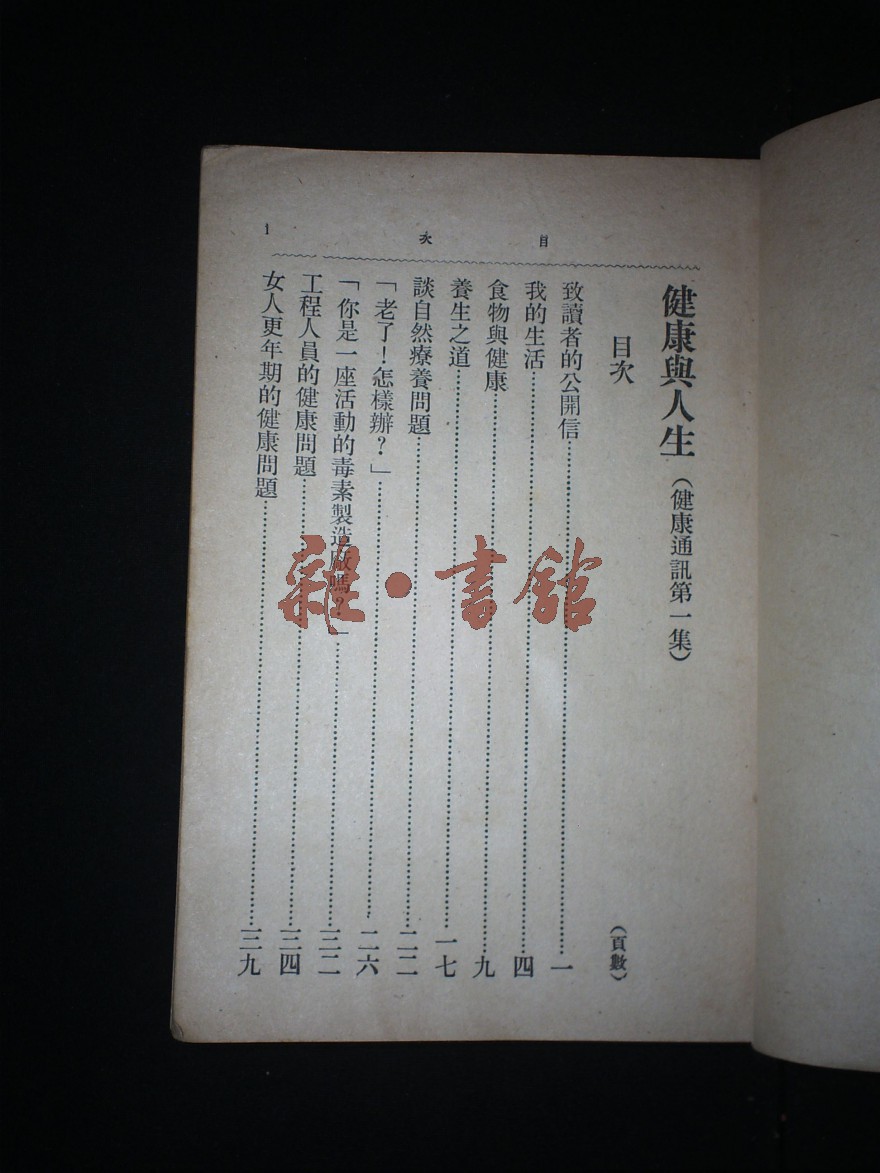 目次
1
健康與人生(健康通訊第一集)
目次(頁數)
致讀者的公開信……一
我的生活……四
食物與健康……九
養生之道……一七
談自然療養問題……二二
「老了!怎樣辦?」……二六
「你是一座活動的毒素製造廠嗎?」……三二
工程人員的健康問題……三四
女人更年期的健康問題……三九
雜·書館